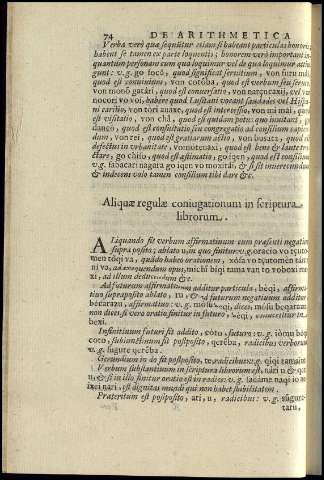 74 DE ARITHMETICA
Verba verò quæ sequũtur etiam si habeant particulas honoris,
habent se tamen ex parte loquentis; honorem verò importãt in
quantum personam cum qua loquimur vel de qua loquimur attin
gunt: v.g. go focô, quod significat seruitium, von furi mâi,
quod est conuiuium, von cotoba, quod est verbum seu sermo,
von monô gatàri, quod est conuersatio, von
nocori vo voi, habere quod Lusitani vocant saudades vel Hispa
ni cariño; von tori auaxe, quod est intercessio, von mi mài, quod
est visitatio, von chà, quod est quidam potus: quo inuitant,
dancò, quod est consultatio, seu congregatio ad consilium capien
dum, von rei, quod est gratiarum actio, von busata, quod est
defectus in vrbanitate, vomotenaxi, quod est bene & laute tra
ctare, go chiso, quod est go iqen, quod est consilium
v.g. sacacari nagara go iqen vo mòxitai, & si sit
& indecens volo tamen consilium tibi dare &c.
Aliquæ regulæ coniugationum in scriptura
librorum.
ALiquando sit verbum affirmatiuum cum præsenti negatiui
supra posito; ablato u, in quo finitur: v.g. oracio vo tçuto
men tòqi va, quãdo habeo orationem, xòsa vo tçutomèn tàme
ni va, ad exequendum opus, michi bìqi tama van to voboxi me
xi, ad illum deducendum &
Ad futurum affirmatiuum additur particula, bèqi, affirma
tiuo suprapositò ablato, ru, & ad futurum negatiuum additur
becarazu, affirmatiuo: v.g. mòsu bèqi, dicet, mòsu beqarazu
non dicet; si verò oratio finitur in futuro, bèqi, conuertitur in
bexi.
Infinitiuum futuri fit addito, coto, futuro: v.g. iòmu beqi
coto, subiunctiuum fit posposito, qerèba, radicibus verborum
v.g. sugure qerèba.
Gerundium in do fit posposito, te, radicibus: v.g. qiqi tamaite
Verbum substantiuum in scriptura librorum est, nàri & nari
u, & si in illo finitur oratio est in radice: v.g. sadame naqi io no
ixei nàri, est dignitas mundi qui non habet stabilitatem.
Præteritum est posposito, ati, u, radicibus: v.g. sugure
taru,